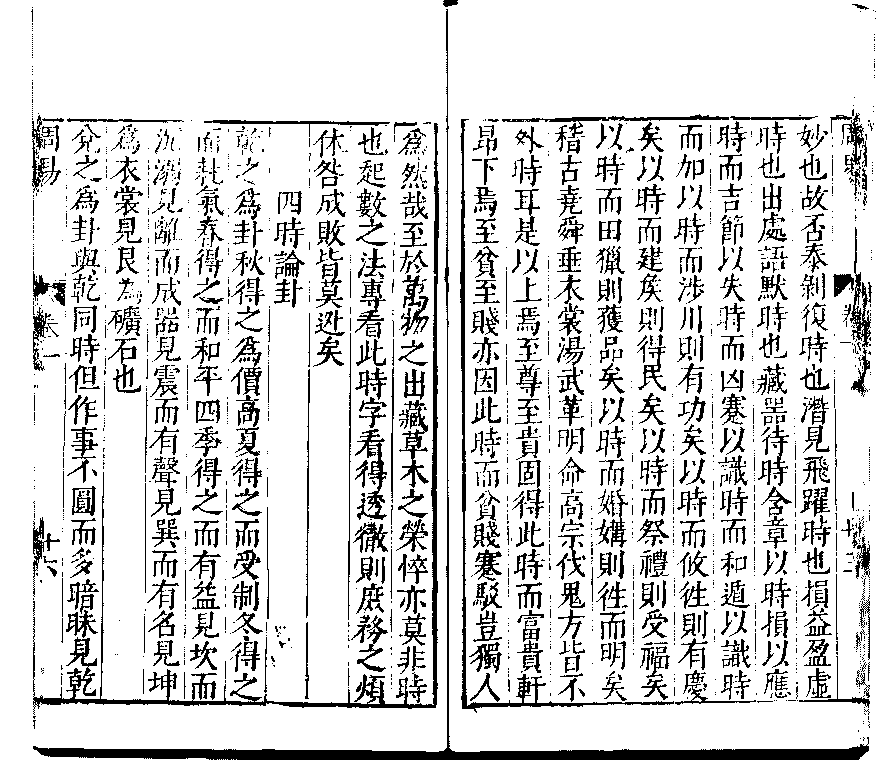 周易
卷一
十三
妙也故否泰剝復時也潛見飛躍時也損益盈虛
時也出處語默時也藏器待時含章以時損以應
時而吉節以失時而凶蹇以識時而和遁以識時
而加以時而涉川則有功矣以時而攸徃則有慶
矣以時而建矦則得民矣以時而祭禮則受福矣
以時而田獵則獲品矣以時而婚媾則徃而明矣
稽古堯舜垂衣裳湯武革明命高宗伐鬼方皆不
外時耳是以上焉至尊至貴固得此時而富貴軒
昂下焉至貧至賤亦因此時而貧賤蹇駁豈獨人
爲然哉至於萬物之出藏草木之榮悴亦莫非時
也起數之法專看此時字看得透徹則庶務之煩
休咎成敗皆莫逃矣
四時論卦
乾之爲卦秋得之爲價高夏得之而受制冬得之
而耗氣春得之而和平四季得之而有益見坎而
沉溺見離而成器見震而有聲見巽而有名見坤
爲衣裳見艮為礦石也
兌之爲卦與乾同時但作事不圓而多暗昧見乾
周易
卷一
十六